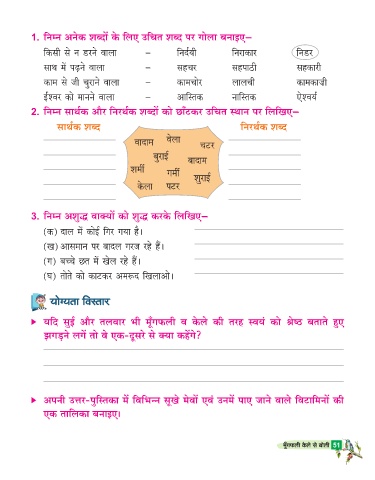 1. निम्न अनेक शब्दों के लिए उचित शब्द पर गोला बनाइए–
किसी से न डरने वाला – निर्दयी निराकार निडर
साथ में पढ़ने वाला – सहचर सहपाठी सहकारी
काम से जी चुराने वाला – कामचोर लालची कामकाजी
ईश्वर को मानने वाला – आस्तिक नास्तिक ऐश्वर्य
2. निम्न सार्थक और निरर्थक शब्दों को छाँटकर उचित स्थान पर लिखिए–
सार्थक शब्द निरर्थक शब्द
बादाम वेला चटर
बुराई बादाम
शर्मी गर्मी शुराई
केला पटर
3. निम्न अशुद्ध वाक्यों को शुद्ध करके लिखिए–
(क) दाल में कोई गिर गया है।
(ख) आसमान पर बादल गरज रहे हैं।
(ग) बच्चे छत में खेल रहे हैं।
(घ) तोते को काटकर अमरूद खिलाओ।
योग्यता विस्तार
यदि सुई और तलवार भी मूँगफली व केले की तरह स्वयं को श्रेष्ठ बताते हुए
झगड़ने लगें तो वे एक-दूसरे से क्या कहेंगे?
अपनी उत्तर-पुस्तिका में विभिन्न सूखे मेवों एवं उनमें पाए जाने वाले विटामिनों की
एक तालिका बनाइए।
मूँगफली केले से बोली 51